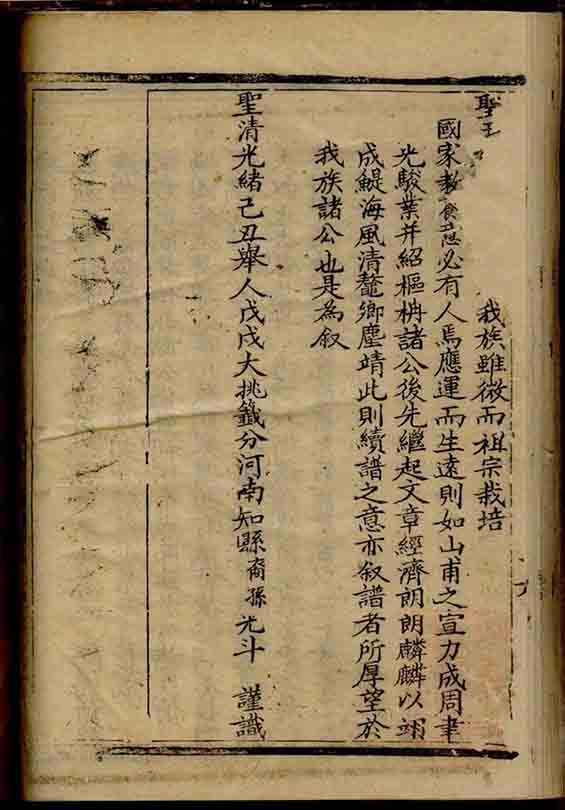 聖王 我族雖微而祖宗栽培
國家教必有人焉應運而生遠則如山甫之宣力成周聿
光駿業并紹樞枬諸公後先繼起文章經濟朗朗麟麟以翊
成鯷海風清鼇鄉塵靖此則續譜之意亦叙譜者所厚望於
我族諸公也是為叙
聖清光緒己丑舉人戊戌大挑籤分河南知縣裔孫光斗 謹識